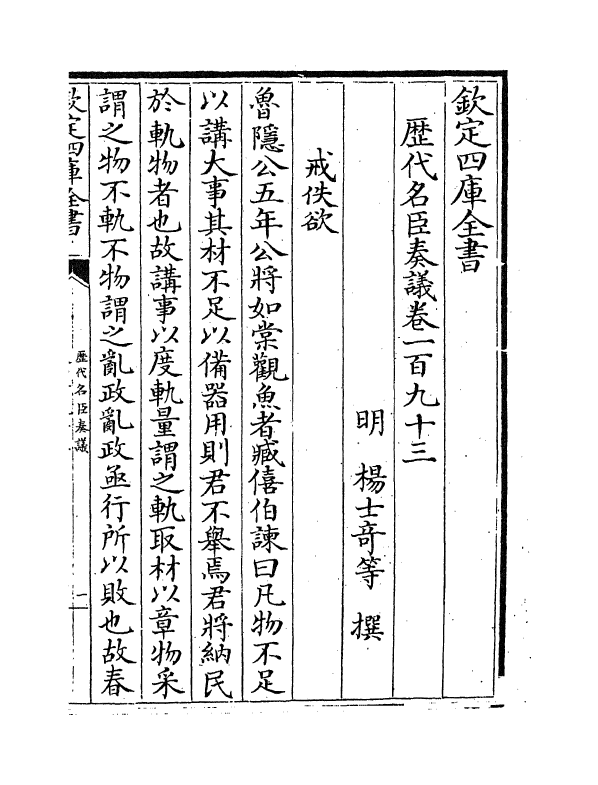 欽定四庫全書
歴代名臣奏議卷一百九十三
明　楊士竒等　撰
戒佚欲
魯隱公五年公將如棠觀魚者臧僖伯諫曰凡物不足
以講大事其材不足以備器用則君不舉焉君將納民
於軌物者也故講事以度軌量謂之軌取材以章物采
謂之物不軌不物謂之亂政亂政亟行所以敗也故春
欽定四庫全書
歴代名臣奏議
一